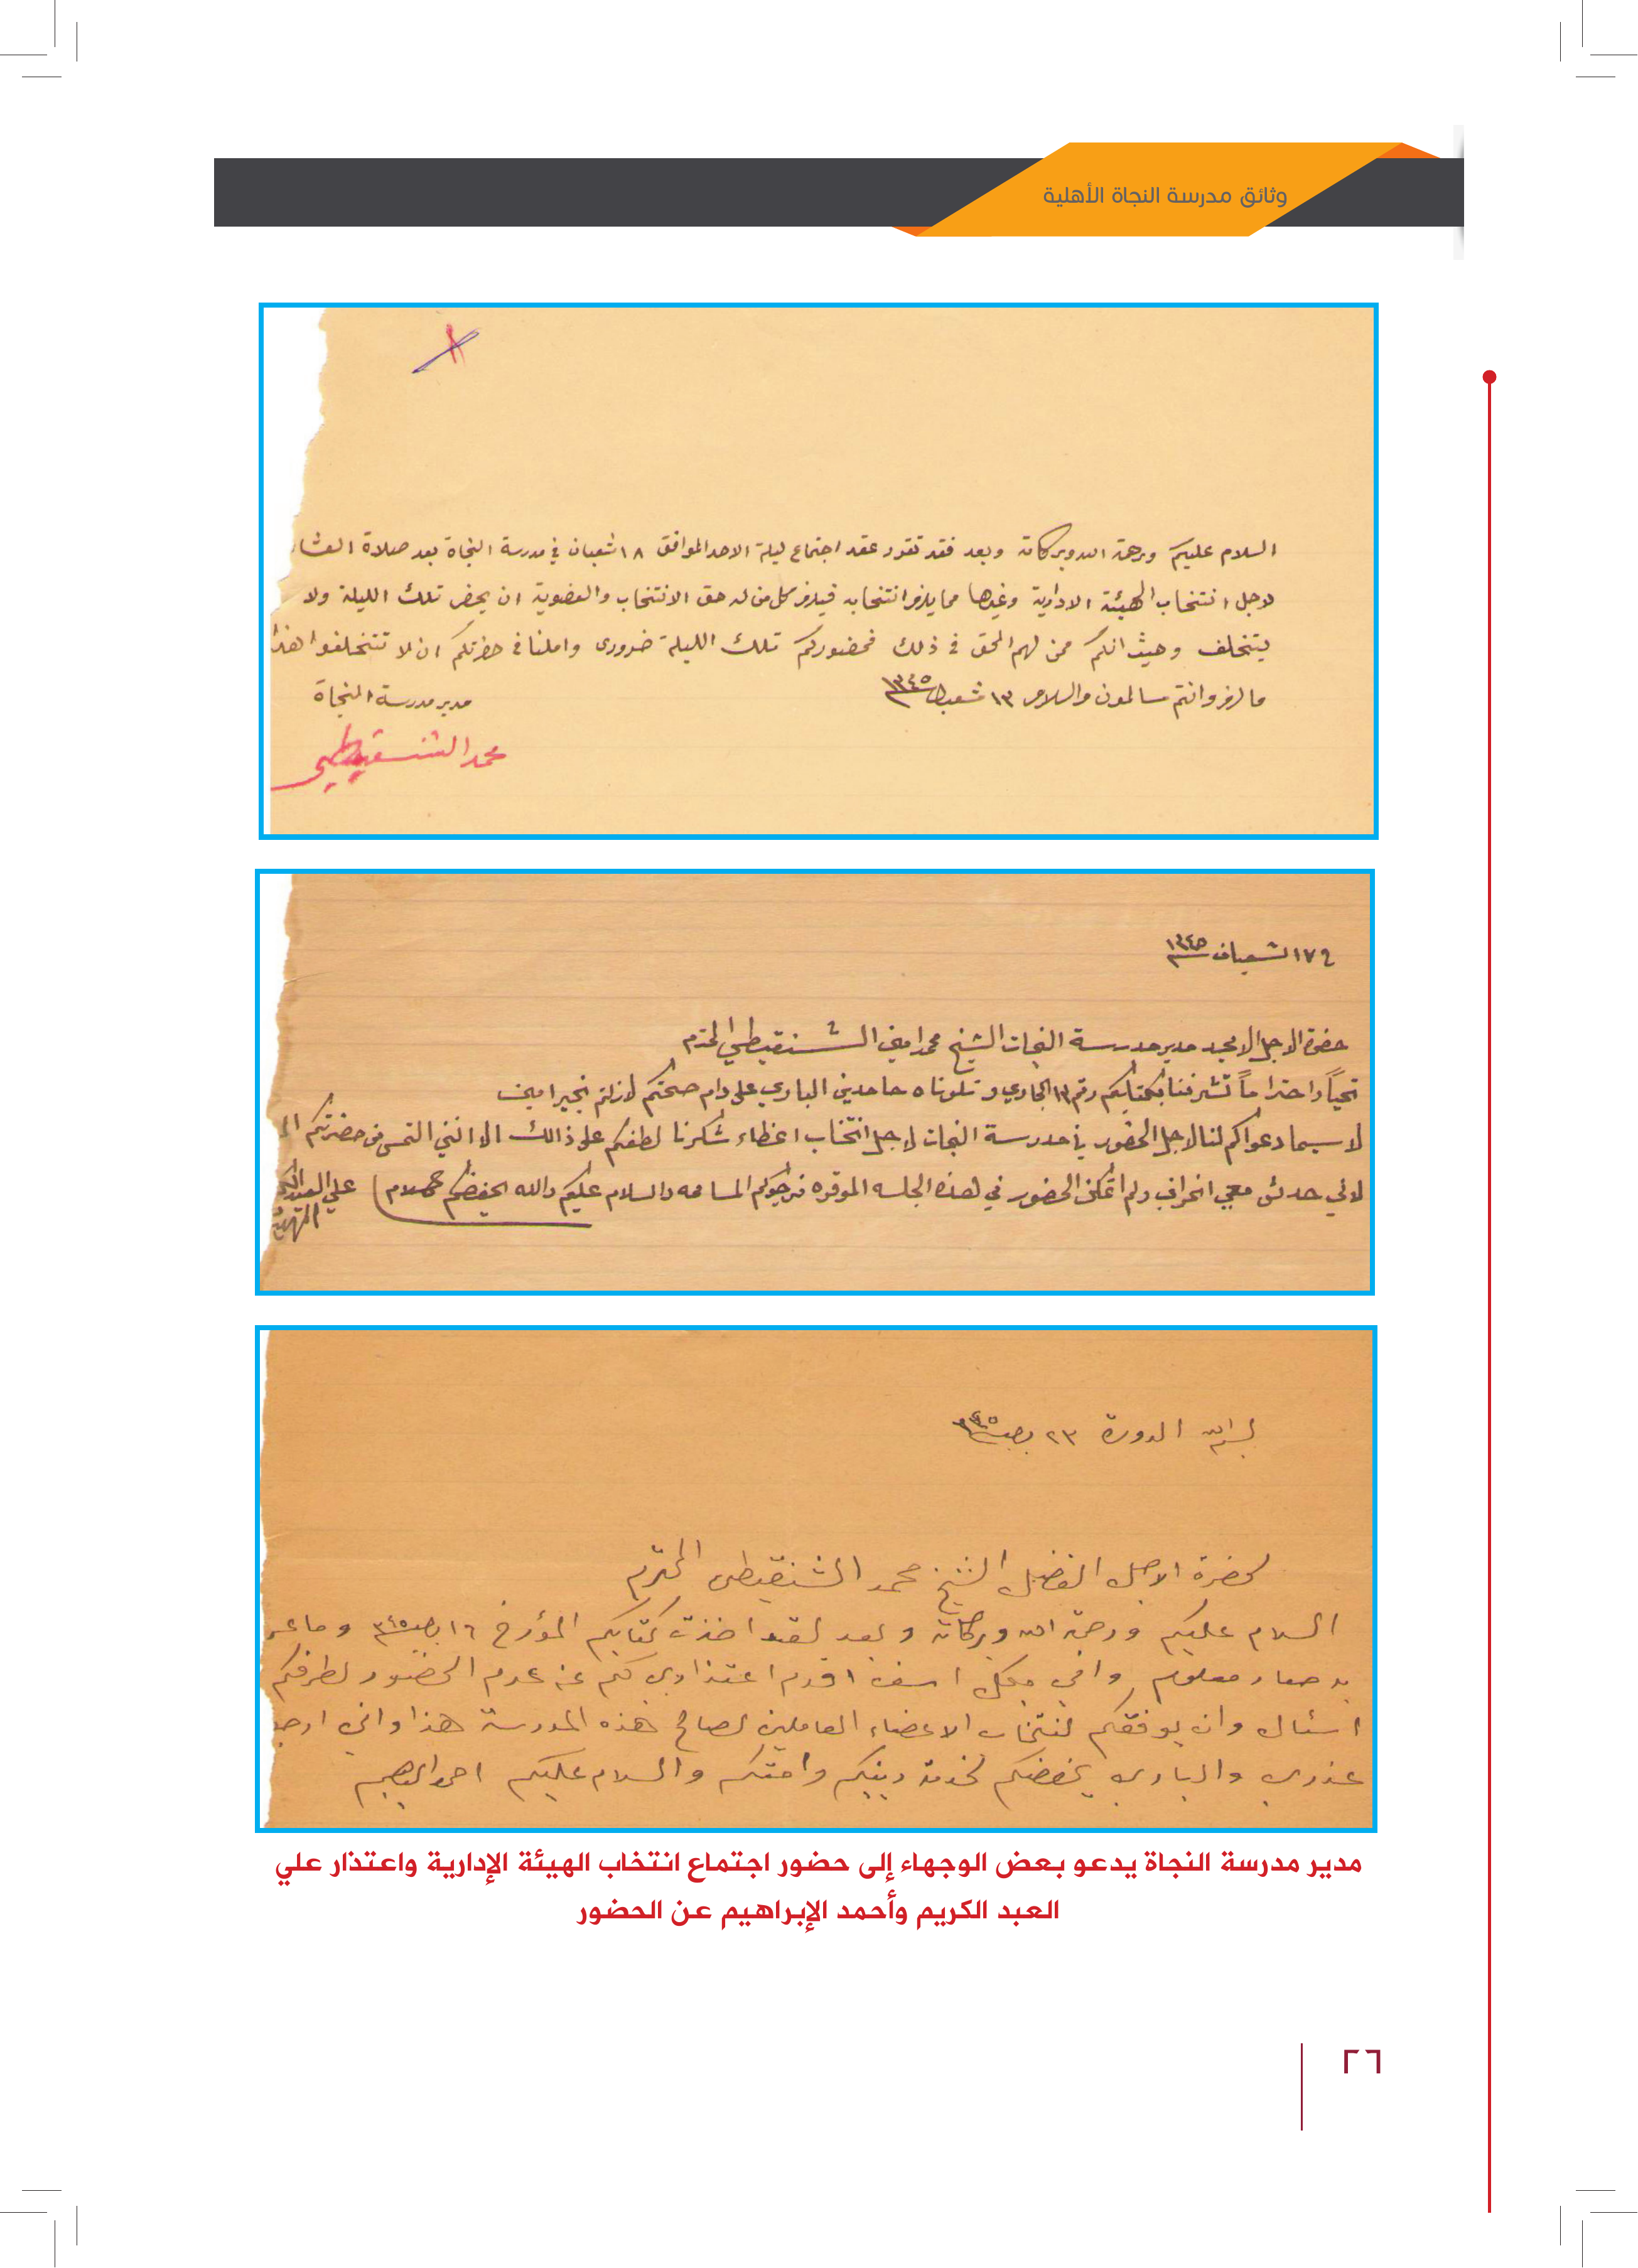 وثائق مدرسة النجاة الأهلية
السلام عليكم ورحمة الله وبركاته وبعد فقد تقرر عقد اجتماع ليلة الاحد الموافق ١٨ شعبان في مدرسة النجاة بعد صلاة العشا
لاجل انتخاب الهيئة الادارية وغيرها مما يلزم انتخابه فيلزم كل من له حق الانتخاب والعضوية ان يحضر تلك الليلة ولا
يتخلف وحيث انكم ممن لهم الحق في ذلك فحضوركم تلك الليلة ضروري واملنا في حضرتكم ان لا تتخلفوا هذا
ما لزم وانتم سالمون والسلام ١٣ شعبان ١٣٤٥
مدير مدرسة النجاة
محمد الشنقيطي
١٧ شعبان ١٣٤٥
حضرة الاجل الامجد مدير مدرسة النجات الشيخ محمد امين الشنقيطي المحترم
تحيتاً واحتراماً تشرفنا بكتابكم رقم ١٣ الجاري وتلوناه حامدين الباري على دوام صحتكم لازلتم بخير امين
لا سيما دعواكم لنا لاجل الحضور في مدرسة النجات لاجل انتخاب اعظاء شكرنا لطفكم على ذالك الا انني التمس من حضرتكم
لاني حدث معي انحراف ولم اتمكن الحضور في هذه الجلسه الموقره نرجوكم المسامحه والسلام عليكم والله يحفضكم
علي العبد الكريم
بسم الله الدورة ٢٣ ٣٤٥
لحضرة الاجل الفضيل الشيخ محمد الشنقيطي المحترم
السلام عليكم ورحمة الله وبركاته وبعد لقد اخذت كتابكم المؤرخ ١٦ ٣٤٥ وما
به صار معلوم واني بكل اسف اقدم اعتذاري لكم عن عدم الحضور لطرفكم
اسئال وان يوفقكم لنتخاب الاعضاء العاملين لصالح هذه المدرسة هذا واني ارجو
عذري والباري يحفضكم لخدمة دينكم وامتكم والسلام عليكم احمد البراهيم
مدير مدرسة النجاة يدعو بعض الوجهاء إلى حضور اجتماع انتخاب الهيئة الإدارية واعتذار علي
العبد الكريم وأحمد الإبراهيم عن الحضور
٢٦